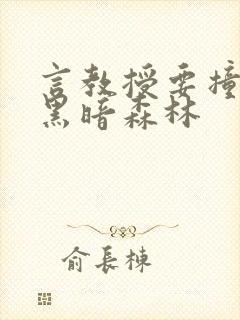 言教授要撞
黑暗森林
俞長棟